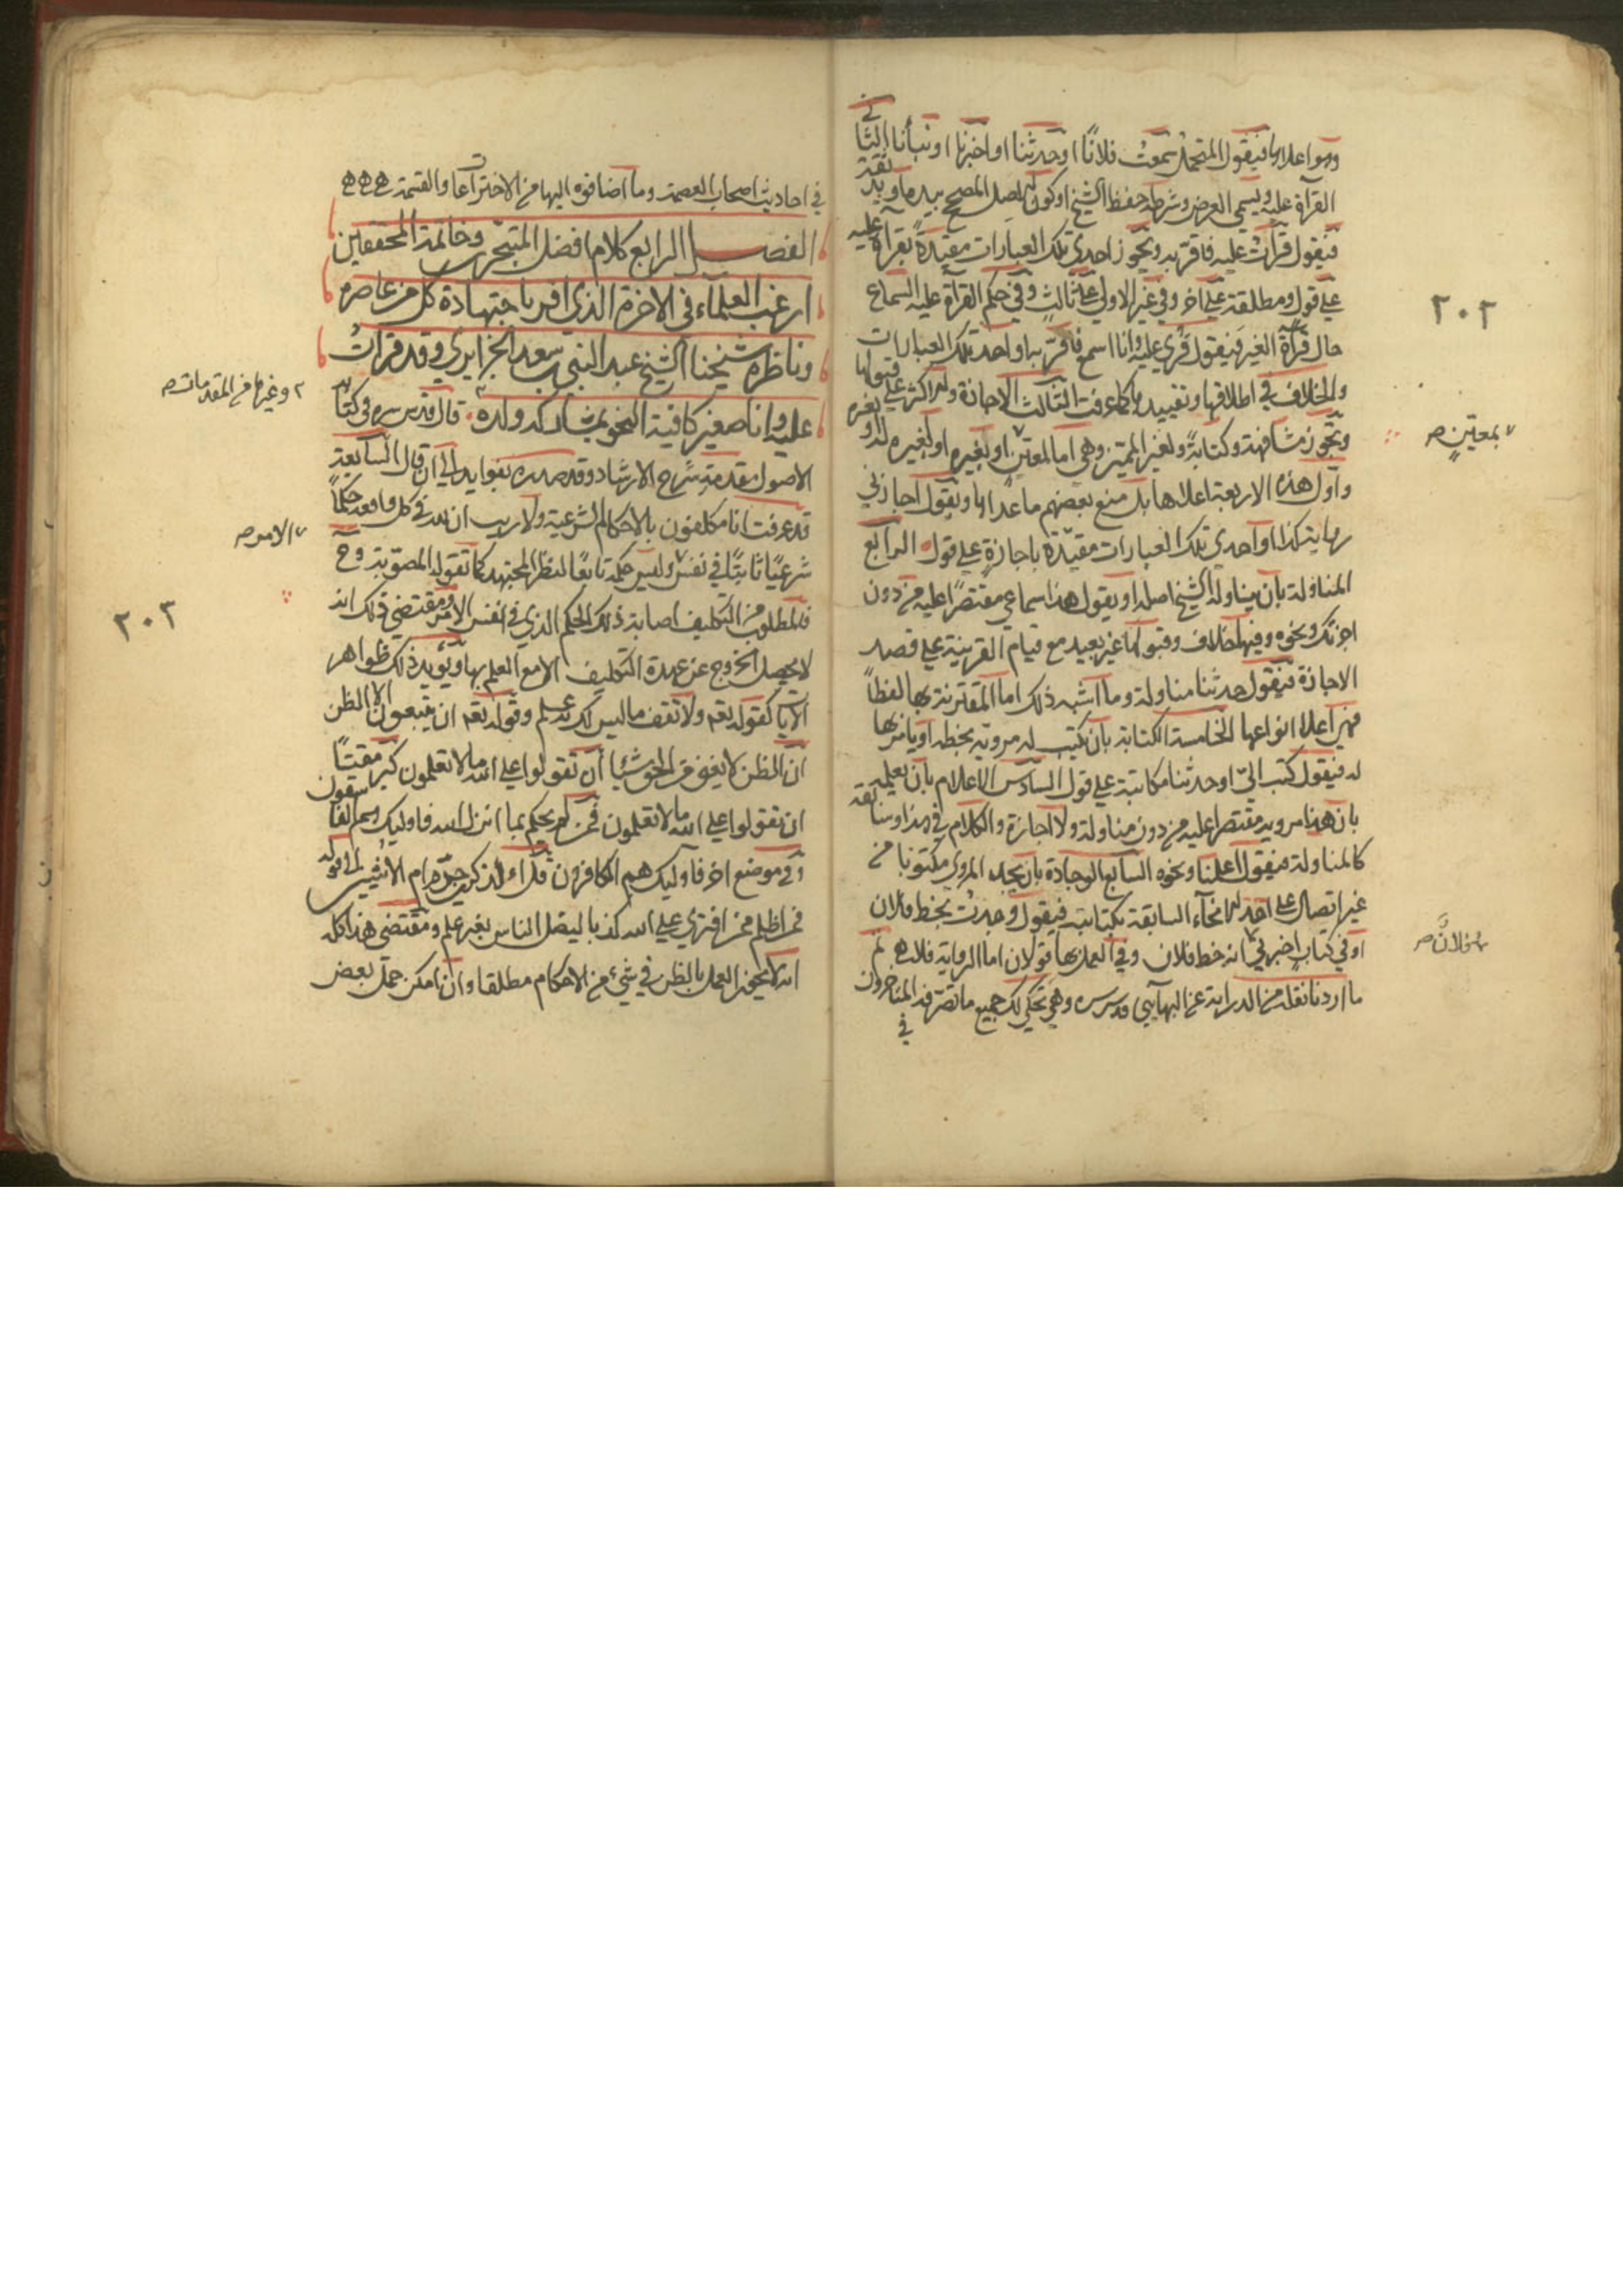 وهو اعلاها فيقول المتحمل سمعت فلانًا او حدثنا او اخبرنا او نبأنا الثاني
القرآة عليه ويسمى العرض وشرطه حفظ الشيخ او كون الاصل المصحح بيده او يد ثقة
فيقول قرأت عليه فاقرّ به ويجوز احدى تلك العبارات مقيدةً بقرآة عليه
على قول ومطلقة على اخر وفي غير الاولى على ثالث وفي حكم القرآة عليه السماع
حال قرآة الغير فيقول قرئ عليه وانا اسمع فاقرّ به او احد تلك العبارات
والخلاف في اطلاقها وتقييدها كما عرفت الثالث الاجازة والاكثر على قبولها
وتجوز مشافهة وكتابة ولغير المميز وهي اما لمعين او بغيره او لغيره به او بغيره
واول هذه الاربعة اعلاها بل منع بعضهم ما عداها ويقول اجازني
رواية كذا او احدى تلك العبارات مقيّدة باجازةٍ على قول الرابع
المناولة بان يناوله الشيخ اصله او يقول هذا سماعي مقتصرًا عليه من دون
اجزتك ونحوه وفيها خلاف وقبولها غير بعيد مع قيام القرينة على قصد
الاجازة فيقول حدثنا مناولة وما اشبه ذلك اما المقترنة بها لفظاً
فهي اعلا انواعها الخامسة الكتابة بان يكتب له مرويه بخطه او يامر بها
له فيقول كتب اليّ او حدثنا مكاتبة على قول السادس الاعلام بان يعلمه
بان هذا مرويه مقتصرا عليه من دون مناولة ولا اجازة والكلام في هذا وسابقه
كالمناولة فيقول اعلمنا ونحوه السابع الوجادة بان يجد المروي مكتوبا من
غير اتصال على احد الانحآء السابقة بكتابته فيقول وجدت بخط فلان
او في كتاب اخبرني انه خط فلان وفي العمل بها قولان اما الرواية فلا هـ ثم
ما اردنا نقله من الدراية عن البهآيي قدس سره وهي تحكي لك جميع ما تصرفه المتاخرون
في
٢٠٢
بمعينٍ صح
فلانٌ صح
في احاديث اصحاب العصمة وما اضافوه اليها من الاختراعات والقسمة هـ هـ هـ
الفصل الرابع كلام افضل المتبحّرين وخاتمة المحققين
ارغب العلمآء في الاخرة الذي اقر باجتهاده كل من عاصره
وناظره شيخنا الشيخ عبد النبي بن سعد الجزايري وقد قرأت
عليه وانا صغير كافية النحو بمشاركة ولده قال قدس سره في كتاب
الاصول مقدمة شرح الارشاد وقد صدره بفوايد الى ان قال السابعة
قد عرفت انا مكلفون بالاحكام الشرعية ولا ريب ان لله في كل واقعة حكمًا
شرعيًا ثابتًا في نفس وليس حكمه تابعًا لنظر المجتهد كما تقوله المصوبة وح
فالمطلوب من التكليف اصابة ذلك الحكم الذي في نفس الامر ومقتضى ذلك انه
لا يحصل الخروج عن عهدة التكليف الا مع العلم بها ويؤيد ذلك ظواهر
الآيات كقوله تعم ولا تقف ما ليس لك به علم وقوله تعم ان يتبعون الا الظن
ان الظن لا يغني من الحق شيئا أن تقولوا على الله ما لا تعلمون كبر مقتًا
ان تقولوا على الله ما لا تعلمون فمن لم يحكم بما انزل الله فاوليك هم الفاسقون
وفي موضع اخر فاوليك هم الكافرون قل الذكرين حرم ام الانثيين الى قوله
فمن اظلم ممن افترى على الله كذبا ليضل الناس بغير علم ومقتضى هذا كله
انه لا يجوز العمل بالظن في شيء من الاحكام مطلقا وان امكن حمل بعض
وغيرها من المقدمات صح
الامر صح
٢٠٣